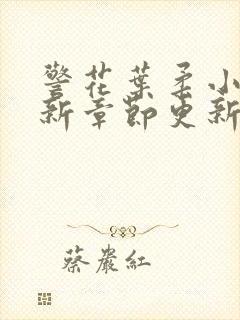 警花葉柔小
新章節更新
蔡嚴紅